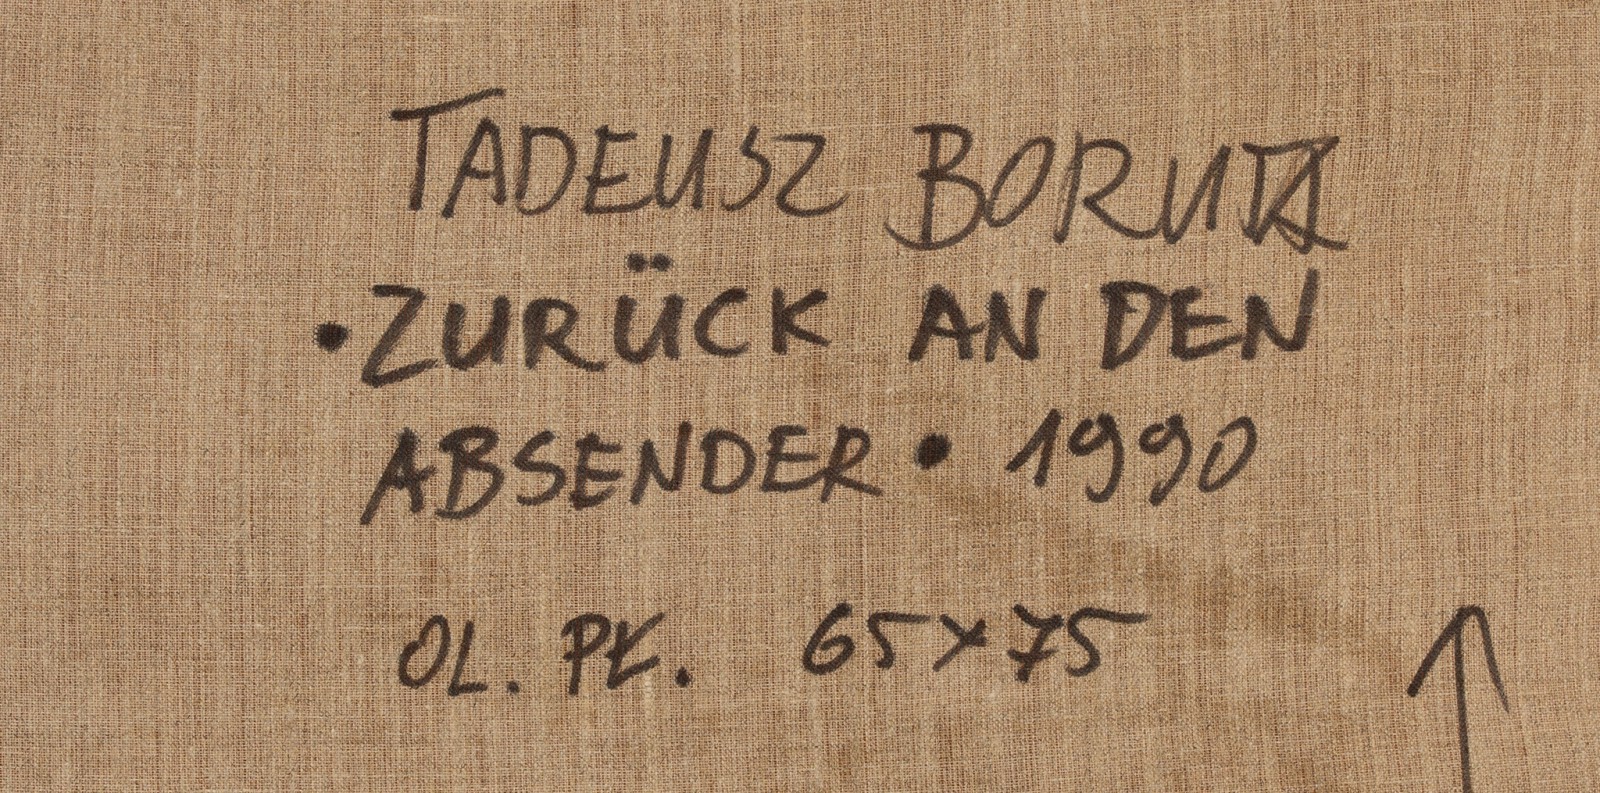 TADEUSZ BORUTA
•ZURÜCK AN DEN
ABSENDER • 1990
OL. PŁ. 65×75